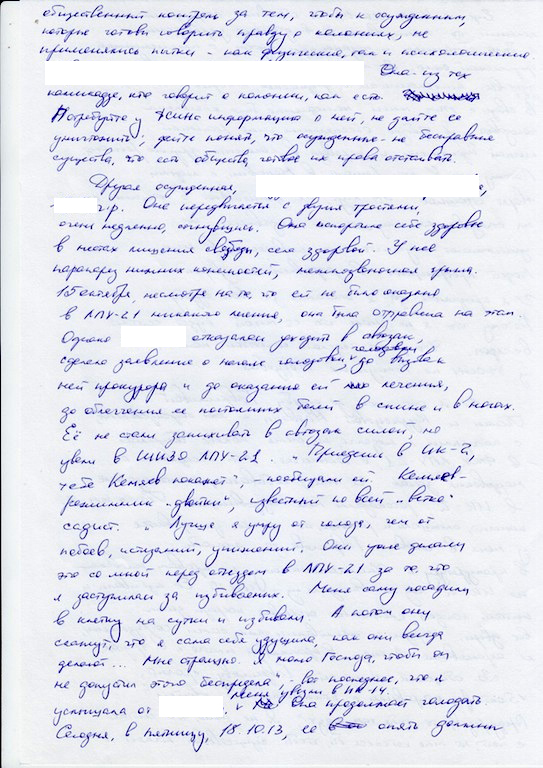 общественный контроль за тем, чтобы к осужденным,
которые готовы говорить правду о колониях, не
применялись пытки - как физические, так и психологические.
Она - из тех
камикадзе, кто говорит о колонии, как есть.
Потребуйте у ФСИНа информацию о ней, не дайте ее
уничтожить; дайте понять, что осужденные - не бесправные
существа, что есть общество, готовое их права отстаивать.
Другая осужденная,
г.р. Она передвигается с двумя тростями,
очень медленно, согнувшись. Она испортила себе здоровье
в местах лишения свободы, села здоровой. У нее
парапарез нижних конечностей, межпозвоночная грыжа.
15 октября, несмотря на то, что ей не было оказано
в ЛПУ-21 никакого лечения, она была отправлена на этап.
Однако отказалась уходить в автозак,
сделала заявление о начале голодовки, голодовки до вызова к
ней прокурора и до оказания ей лечения,
до облегчения ее постоянных болей в спине и в ногах.
Её не стали запихивать в автозак силой, но
увели в ШИЗО ЛПУ-21. "Приедешь в ИК-2,
тебе Кемяев покажет", - пообещали ей. Кемяев -
режимник "двойки", известный по всей "ветке"
садист. "Лучше я умру от голода, чем от
побоев, истязаний, унижений. Они уже делали
это со мной перед отъездом в ЛПУ-21 за то, что
я заступилась за избиваемых. Меня саму посадили
в клетку на сутки и избивали. А потом они
скажут, что я сама себя удушила, как они всегда
делают... Мне страшно. Я молю Господа, чтобы он
не допустил этого беспредела", - вот последнее, что я
услышала от , меня увезли в ИК-14. Она продолжает голодать.
Сегодня, в пятницу, 18.10.13, ее опять должны